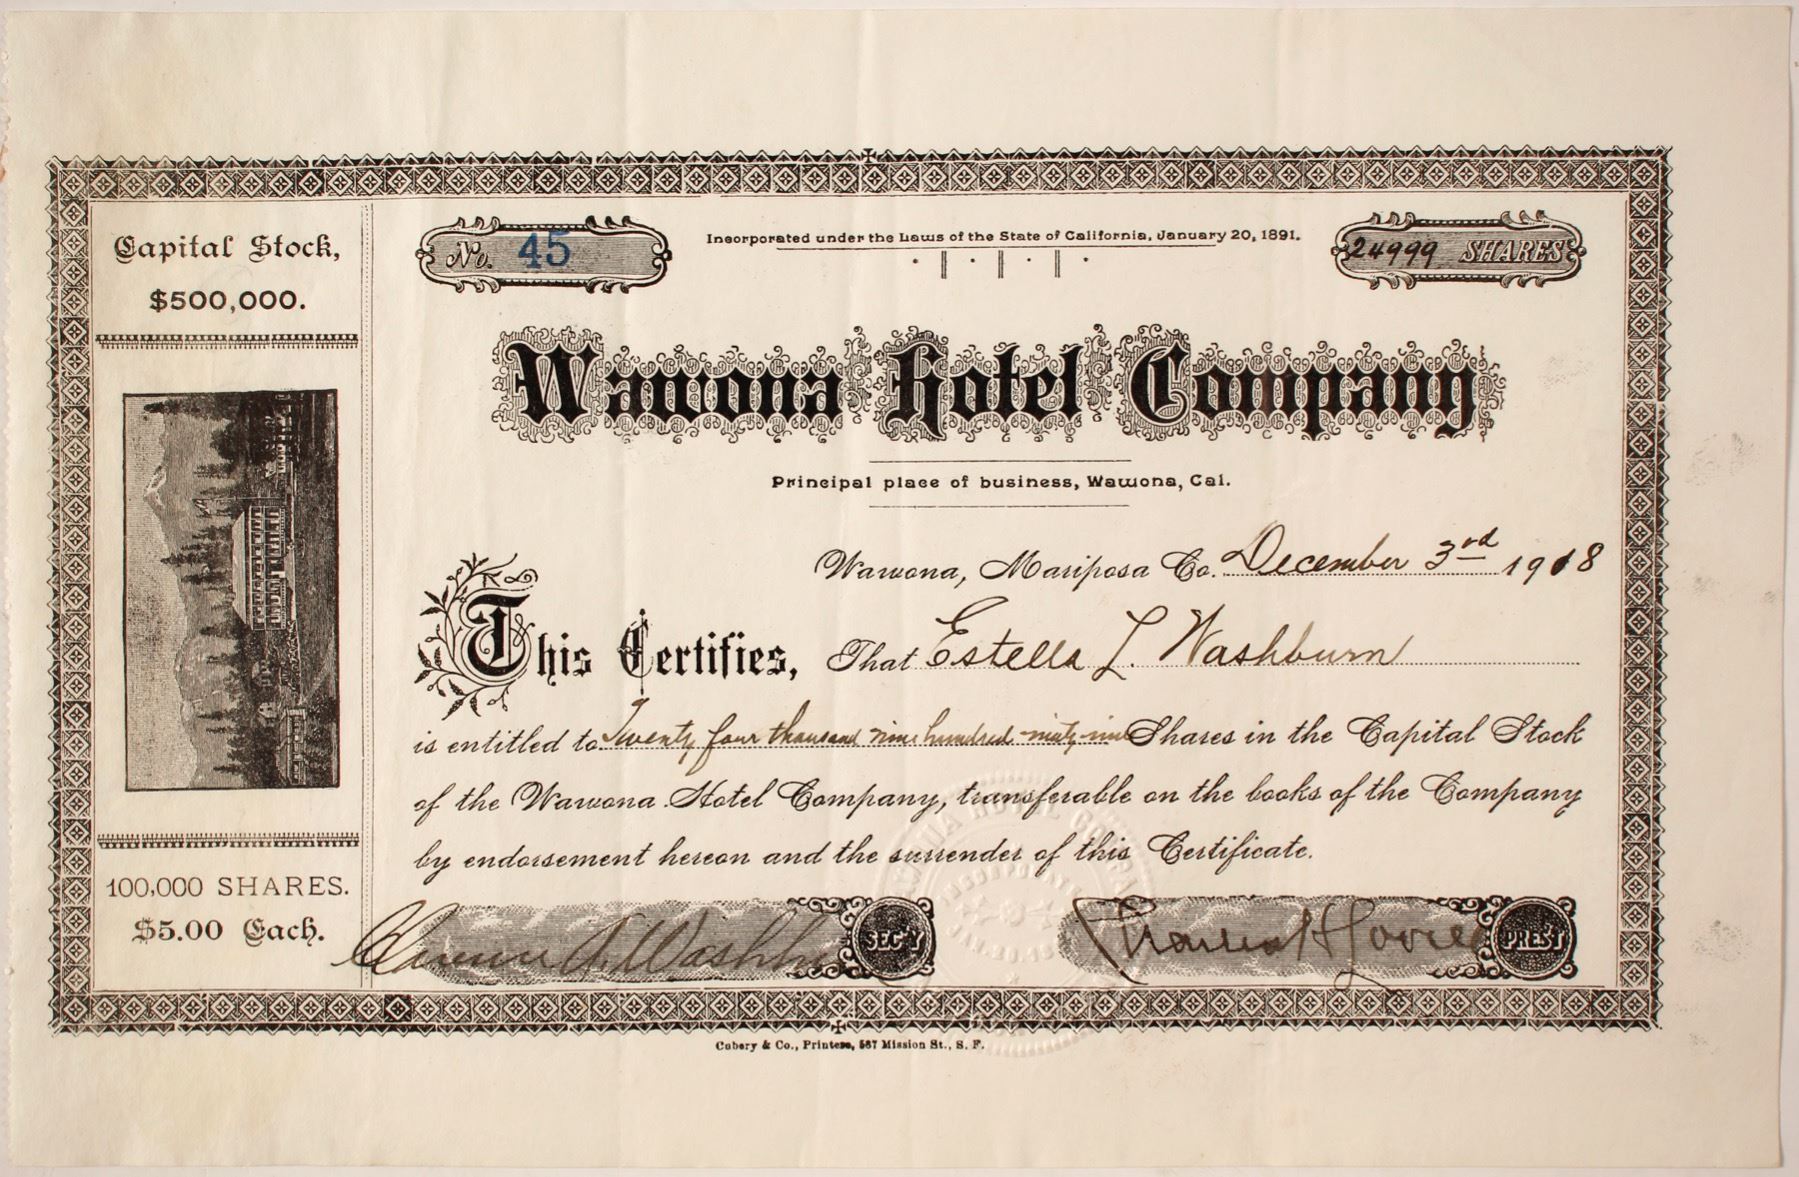 Capital Stock,
$500,000.
100,000 SHARES.
$5.00 Each.
No. 45
Incorporated under the Laws of the State of California, January 20, 1891.
24999 SHARES
Wawona Hotel Company
Principal place of business, Wawona, Cal.
Wawona, Mariposa Co. December 3rd 1918
This Certifies, That Estella L. Washburn
is entitled to Twenty four thousand nine hundred ninety nine Shares in the Capital Stock
of the Wawona Hotel Company, transferable on the books of the Company
by endorsement hereon and the surrender of this Certificate.
Clarence A. Washburn SEC'Y
PREST
Cubery & Co., Printers, 587 Mission St., S. F.